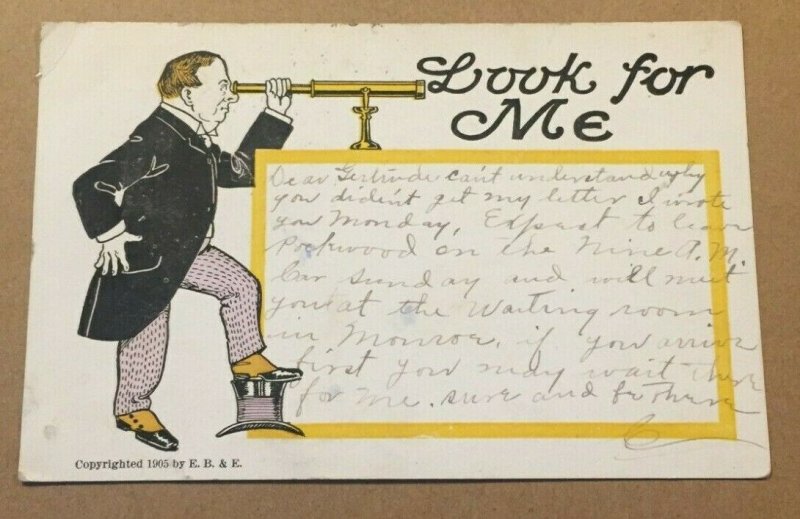 Look for
Me
Dear Gertrude can't understand why
you didin't get my letter I wrote
you Monday, Expect to leave
Rockwood on the Nine A.M.
Car Sunday and will meet
you at the Waiting room
in Monroe, if you arrive
first you may wait there
for me. sure and be there
C
Copyrighted 1905 by E. B. & E.